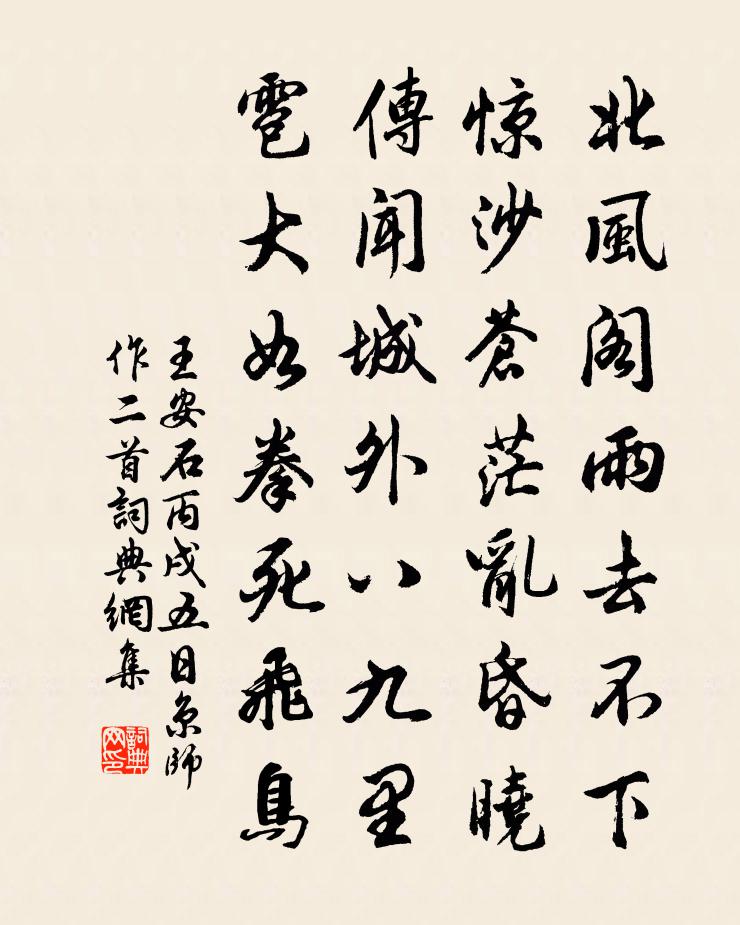 北風閣雨去不下
惊沙蒼茫亂昏曉
傳聞城外八九里
雹大如拳死飛鳥
王安石丙戍五日京師
作二首詞典網集
詞典网印